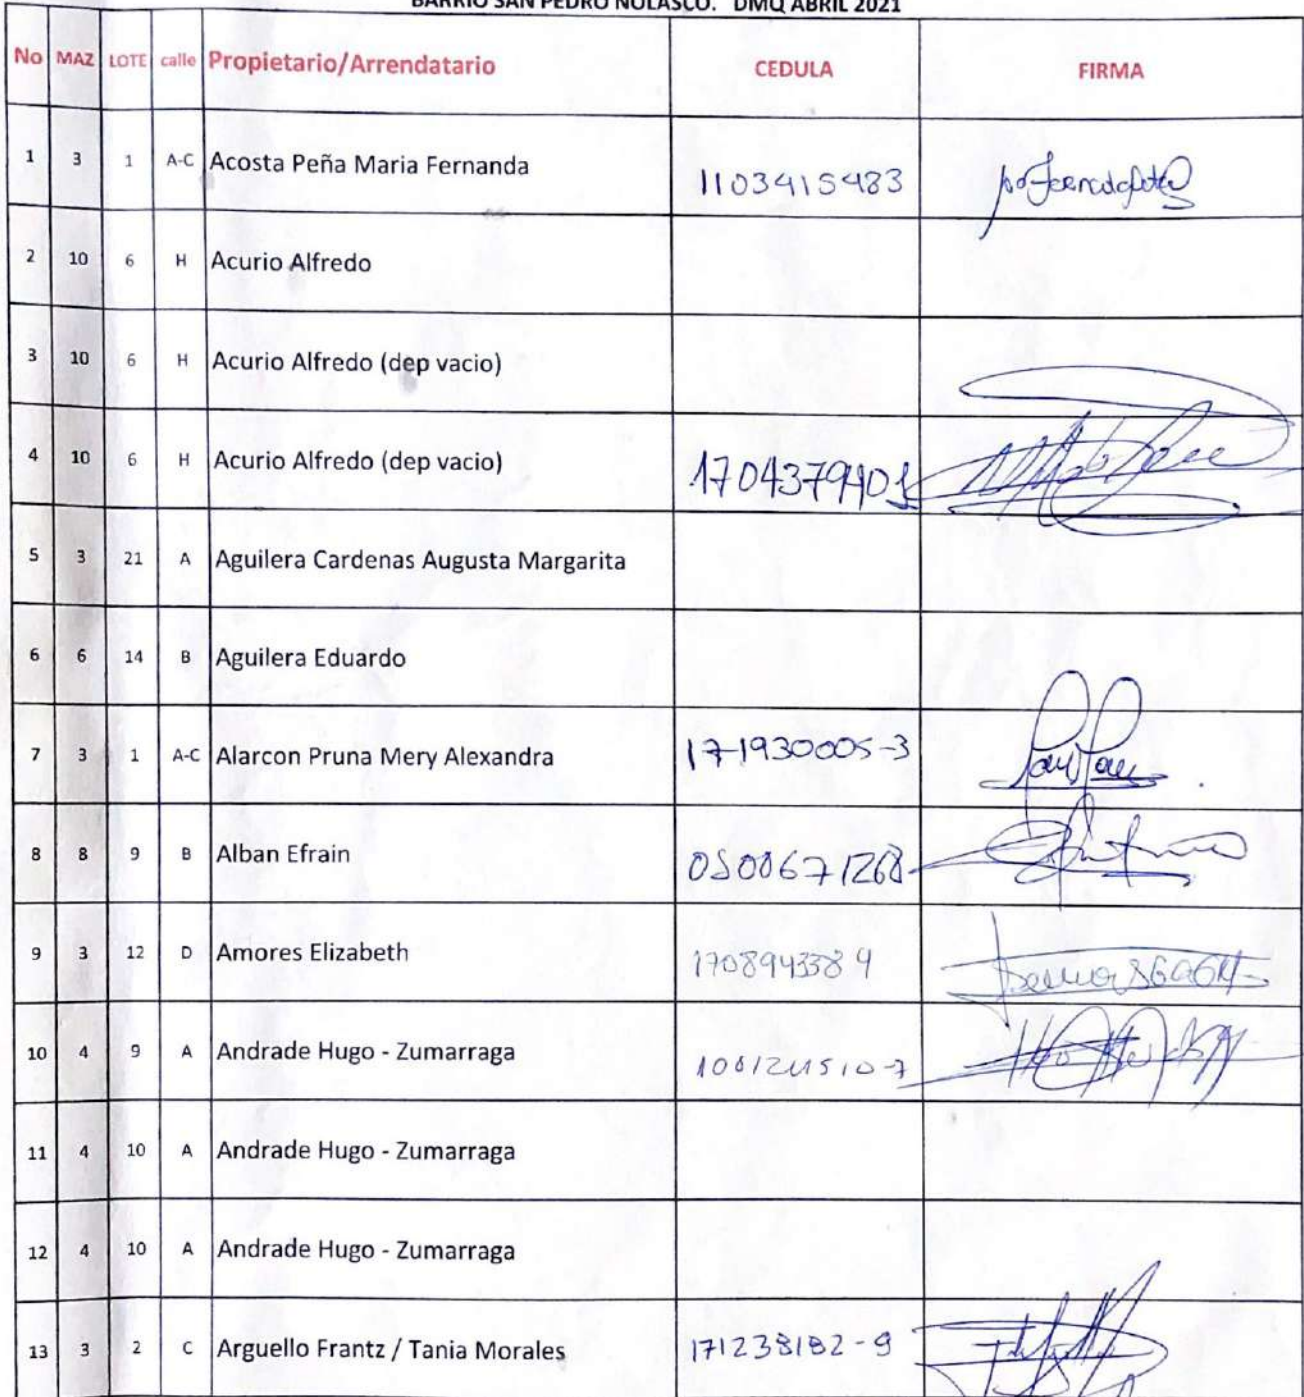 BARRIO SAN PEDRO NOLASCO. DMQ ABRIL 2021
No MAZ LOTE calle Propietario/Arrendatario CEDULA FIRMA
1 3 1 A-C Acosta Peña Maria Fernanda 1103415483
2 10 6 H Acurio Alfredo
3 10 6 H Acurio Alfredo (dep vacio)
4 10 6 H Acurio Alfredo (dep vacio)
5 3 21 A Aguilera Cardenas Augusta Margarita
6 6 14 B Aguilera Eduardo
7 3 1 A-C Alarcon Pruna Mery Alexandra 171930005-3
8 8 9 B Alban Efrain
9 3 12 D Amores Elizabeth 1708943389
10 4 9 A Andrade Hugo - Zumarraga
11 4 10 A Andrade Hugo - Zumarraga
12 4 10 A Andrade Hugo - Zumarraga
13 3 2 C Arguello Frantz / Tania Morales 171238182-9